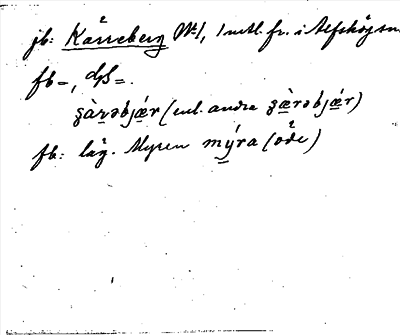 jb: Kårreberg № 1, 1 mtl. fr. i Alfshög sn
fb =, dß =.
gàrəbjær (enl. andra gærəbjær)
fb: låg. Myren mýra (öde)